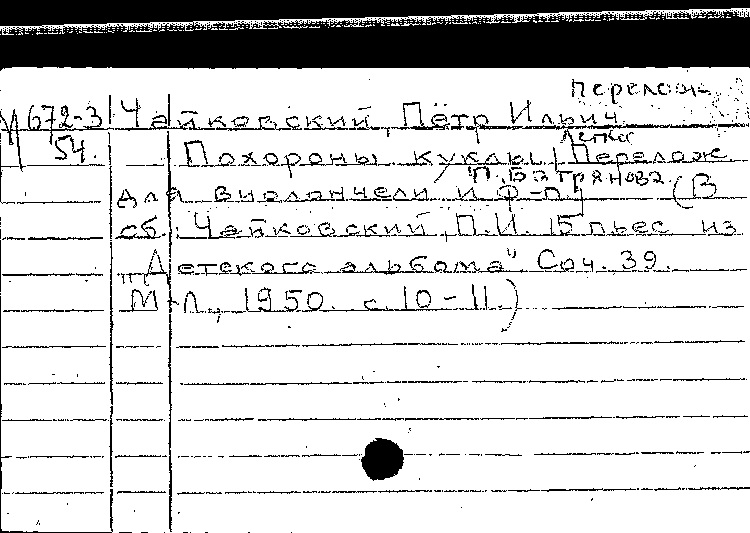 перелож.
М 672-3 Чайковский, Пётр Ильич
54. легкое
Похороны куклы | Перелож
П. Батрянова
для виолончели и ф-п.] (В
сб.: Чайковский, П.И. 15 пьес из
"Детского альбома". Соч. 39.
М-Л., 1950. с. 10-11.)